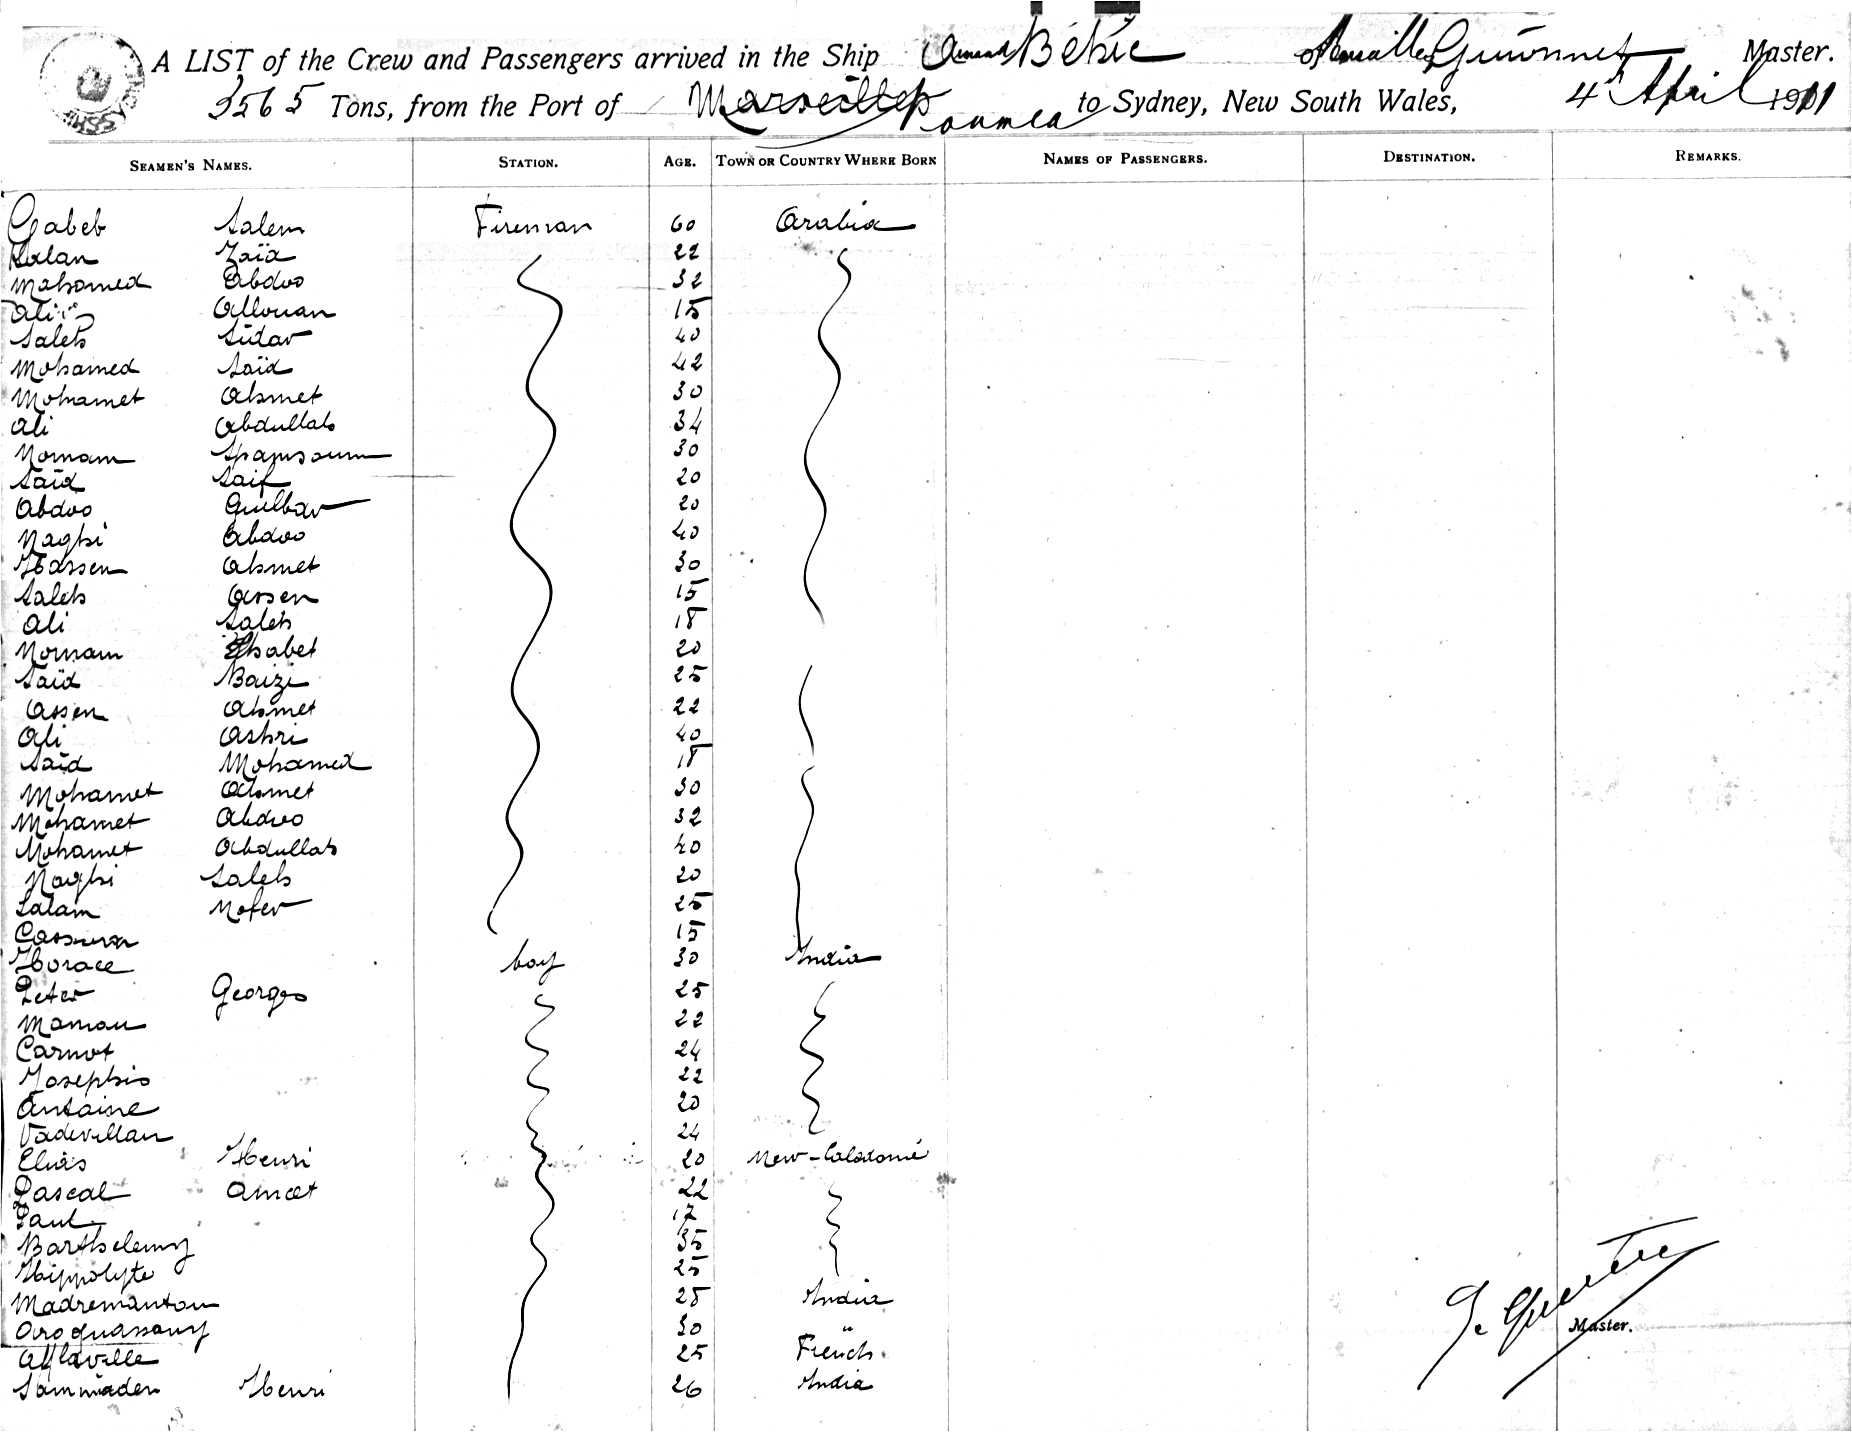 A LIST of the Crew and Passengers arrived in the Ship Armand Béhic of Master.
3565 Tons, from the Port of Marseilles Noumea to Sydney, New South Wales, 4th April 1911
SEAMEN'S NAMES. STATION. AGE. TOWN OR COUNTRY WHERE BORN NAMES OF PASSENGERS. DESTINATION. REMARKS.
Gabeb Salem Fireman 60 Arabia
Salan Zaïd 22
Mohamed Abdoo 32
Ali Allouan 15
Saleh Sudar 40
Mohamed Saïd 42
Mohamet Ahmet 30
Ali Abdullah 34
Nomam 30
Saïd Saif 20
Abdoo Guilbar 20
Naghi Abdoo 40
Hassen Ahmet 30
Saleh Assen 15
Ali Saleh 18
Nomam Thabet 20
Saïd Baizi 25
Assen Ahmet 22
Ali Ashri 40
Saïd Mohamed 18
Mohamet Ahmet 30
Mohamet Abdoo 32
Mohamet Abdullah 40
Naghi Saleh 20
Salam Nofer 25
15
Horace boy 30 India
Peter Georges 25
Mamou 22
Carnot 24
Josephio 22
Antoine 20
Vadivillan 24
Elias Henri 20 New-Caledonie
Pascal Amcet 22
Paul 17
Barthelemy 35
Hippolyte 25
Madremantou 28 India
Aroquassamy 30 "
Allaville 25 French
Sammaden Henri 26 India
Master.